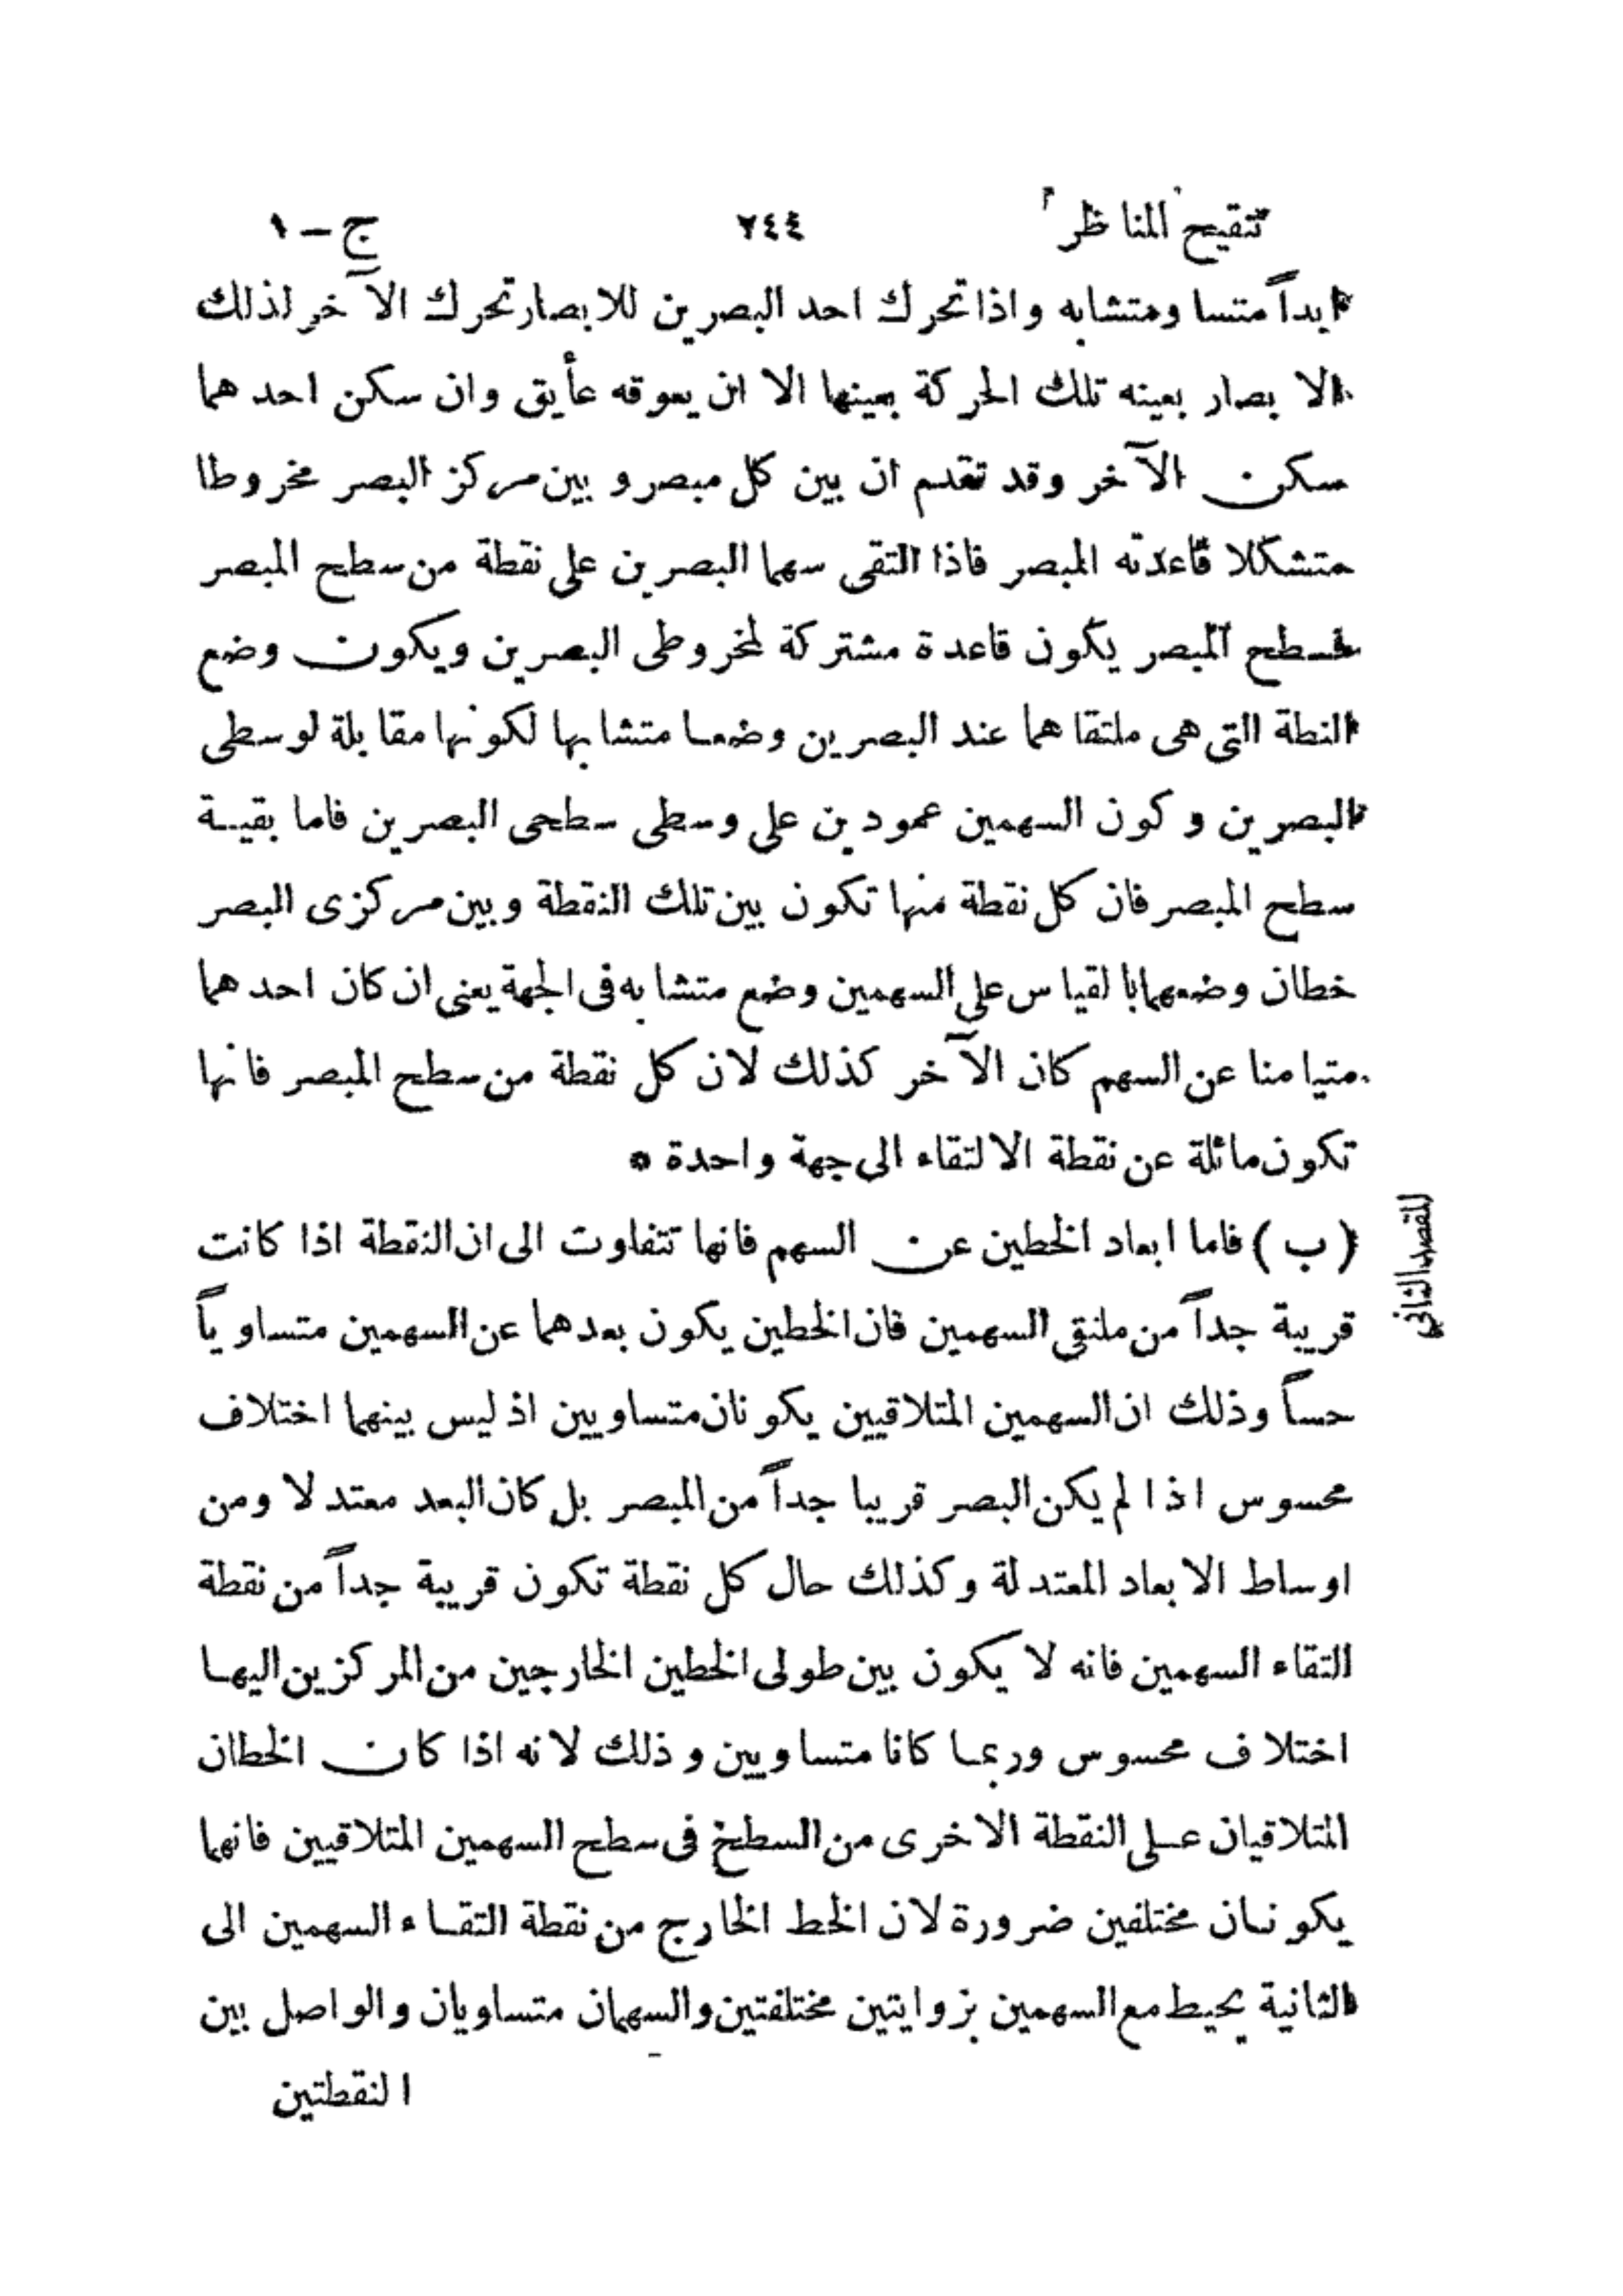 تنقيح المناظر ٢٤٤ ج – ١
ابداً متسا ومتشابه واذا تحرك احد البصرين للابصار تحرك الآخر لذلك
الابصار بعينه تلك الحركة بعينها الا ان يعوقه عأيق وان سكن احدهما
سكن الآخر وقد تقدم ان بين كل مبصر و بين مركز البصر مخروطا
متشكلا قاعدته المبصر فاذا التقى سهما البصرين على نقطة من سطح المبصر
فسطح المبصر يكون قاعدة مشتركة لمخروطى البصرين ويكون وضع
النطة التى هى ملتقاهما عند البصرين وضعا متشابها لكونها مقابلة لوسطى
البصرين و كون السهمين عمودين على وسطى سطحى البصرين فاما بقية
سطح المبصر فان كل نقطة منها تكون بين تلك النقطة و بين مركزى البصر
خطان وضعهما بالقياس على السهمين وضع متشابه فى الجهة يعنى ان كان احدهما
متيامنا عن السهم كان الآخر كذلك لان كل نقطة من سطح المبصر فانها
تكون مائلة عن نقطة الالتقاء الى جهة واحدة *
(ب) فاما ابعاد الخطين عن السهم فانها تتفاوت الى ان النقطة اذا كانت
المقصد الثانى
قريبة جداً من ملتقى السهمين فان الخطين يكون بعدهما عن السهمين متساوياً
حساً وذلك ان السهمين المتلاقيين يكونان متساويين اذ ليس بينهما اختلاف
محسوس اذا لم يكن البصر قريبا جداً من المبصر بل كان البعد معتدلا ومن
اوساط الابعاد المعتدلة وكذلك حال كل نقطة تكون قريبة جداً من نقطة
التقاء السهمين فانه لا يكون بين طولى الخطين الخارجين من المركزين اليها
اختلاف محسوس وربما كانا متساويين وذلك لانه اذا كان الخطان
المتلاقيان على النقطة الاخرى من السطح فى سطح السهمين المتلاقيين فانهما
يكونان مختلفين ضرورة لان الخط الخارج من نقطة التقاء السهمين الى
الثانية يحيط مع السهمين بزوايتين مختلفتين والسهمان متساويان والواصل بين
النقطتين